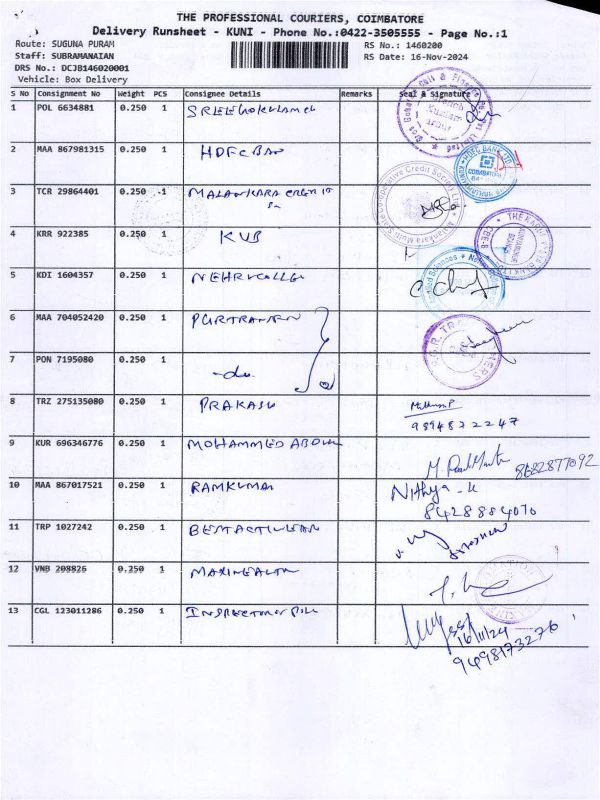 THE PROFESSIONAL COURIERS, COIMBATORE
Delivery Runsheet - KUNI - Phone No.:0422-3505555 - Page No.:1
Route: SUGUNA PURAM
RS No.: 1460200
Staff: SUBRAMANAIAN
RS Date: 16-Nov-2024
DRS No.: DCJB146020001
Vehicle: Box Delivery
S No Consignment No Weight PCS Consignee Details Remarks Seal & Signature
1 POL 6634881 0.250 1
2 MAA 867981315 0.250 1 HDFC BAN
3 TCR 29864401 0.250 1 MALANKARA
4 KRR 922385 0.250 1 KVB
5 KDI 1604357 0.250 1 NEHRU COLLGE
6 MAA 704052420 0.250 1
7 PON 7195080 0.250 1 -do-
8 TRZ 275135080 0.250 1 PRAKASH
9894872247
9 KUR 696346776 0.250 1 MOHAMMED ABDUL
8682877092
10 MAA 867017521 0.250 1 RAMKUMAR Nithya - k
8428884070
11 TRP 1027242 0.250 1
12 VNB 208826 0.250 1
13 CGL 123011286 0.250 1 INSPECTOR OF
16/11/24
9498173276